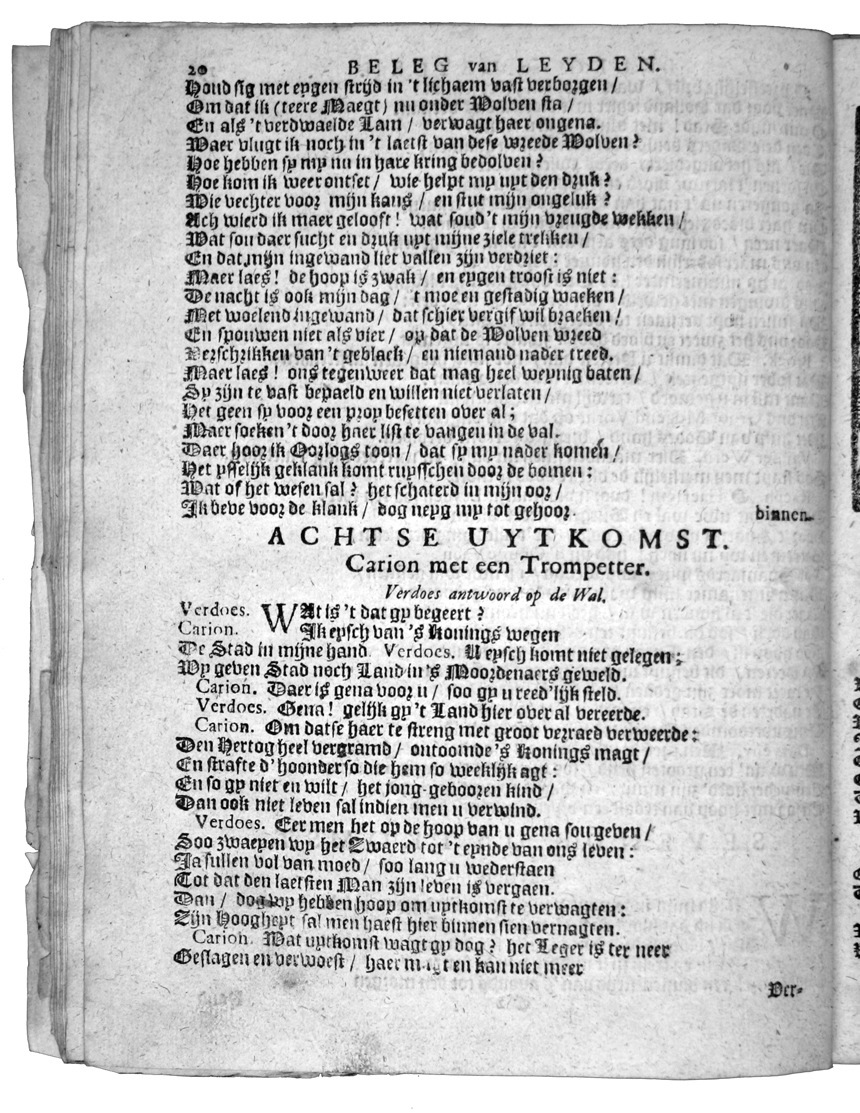 20 BELEG van LEYDEN.
Houd sig met eygen strijd in 't lichaem vast verborgen /
Om dat ik (teere Maegt) nu onder Wolven sta /
En als 't verdwaelde Lam / verwagt haer ongena.
Waer vlugt ik noch in 't laetst van dese wreede Wolven?
Hoe hebben sy my nu in hare kring bedolven?
Hoe kom ik weer ontset / wie helpt my uyt den druk?
Wie vechter voor mijn kans / en stut mijn ongeluk?
Ach wierd ik maer gelooft! wat soud 't mijn vreugde wekken /
Wat sou daer sucht en druk uyt mijne ziele trekken /
En dat mijn ingewand liet vallen zijn verdriet:
Maer laes! de hoop is zwak / en eygen troost is niet:
De nacht is ook mijn dag / 't moe en gestadig waeken /
Met woelend ingewand / dat schier vergif wil braeken /
En spouwen niet als vier / op dat de Wolven wreed
Verschrikken van 't geblack / en niemand nader treed.
Maer laes! ons tegenweer dat mag heel weynig baten /
Sy zijn te vast bepaeld en willen niet verlaten /
Het geen sy voor een proy besetten over al;
Maer soeken 't door haer list te vangen in de val.
Daer hoor ik Oorlogs toon / dat sy my nader komen /
Het ysselijk geklank komt ruysschen door de bomen:
Wat of het wesen sal? het schaterd in mijn oor /
Ik beve voor de klank / dog neyg my tot gehoor. binnen.
ACHTSE UYTKOMST.
Carion met een Trompetter.
Verdoes antwoord op de Wal.
Verdoes. WAt is 't dat gy begeert?
Carion. Ik eysch van 's Konings wegen
De Stad in mijne hand. Verdoes. U eysch komt niet gelegen;
Wy geven Stad noch Land in 's Moordenaers geweld.
Carion. Daer is gena voor u / soo gy u reed'lijk steld.
Verdoes. Gena! gelijk gy 't Land hier over al vereerde.
Carion. Om datse haer te streng met groot verraed verweerde:
Den Hertog heel vergramd / ontoomde 's Konings magt /
En strafte d' hoonder so die hem so weeklijk agt:
En so gy niet en wilt / het jong-gebooren kind /
Dan ook niet leven sal indien men u verwind.
Verdoes. Eer men het op de hoop van u gena sou geven /
Soo zwaeyen wy het Zwaerd tot 't eynde van ons leven:
Ja sullen vol van moed / soo lang u wederstaen
Tot dat den laetsten Man zijn leven is vergaen.
Dan / dog wy hebben hoop om uytkomst te verwagten:
Zijn Hoogheyt sal men haest hier binnen sien vernagten.
Carion. Wat uytkomst wagt gy dog? het Leger is ter neer
Geslagen en verwoest / haer magt en kan niet meer
Ver-